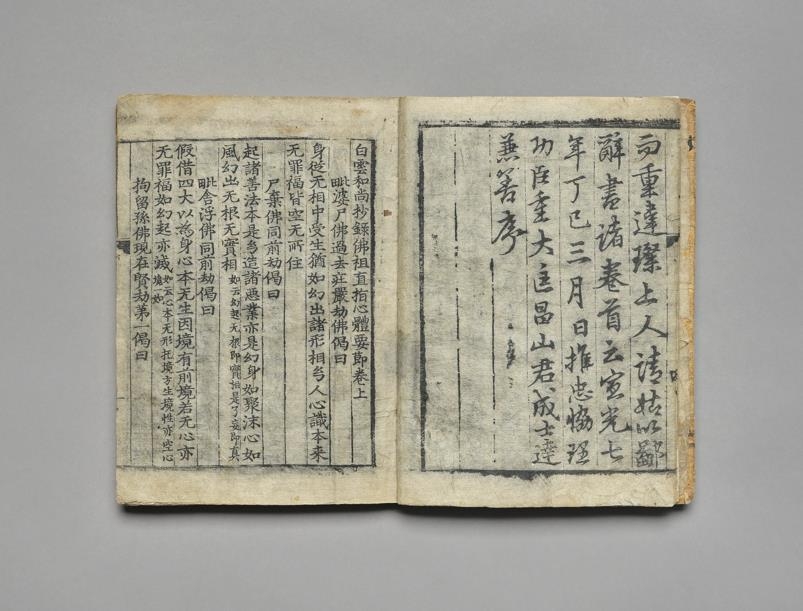 而重達璨上人請姑以鄙
辭書諸卷首云宣光七
年丁巳三月日推忠協理
功臣重大匡昌山君成士達
兼善序
白雲和尚抄錄佛祖直指心體要節卷上
毗婆尸佛過去莊嚴劫佛偈曰
身從无相中受生猶如幻出諸形相幻人心識本來
无罪福皆空无所住
尸棄佛同前劫偈曰
起諸善法本是幻造諸惡業亦是幻身如聚沫心如
風幻出无根无實相如云幻起无根即實相是了妄即真
毗舍浮佛同前劫偈曰
假借四大以為身心本无生因境有前境若无心亦
无罪福如幻起亦滅如云心本无形托境方生境性亦空心境一如
拘留孫佛現在賢劫第一偈曰